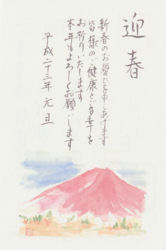 迎春
新春のお慶びを申しあげます
皆様のご健康とご多幸を
お祈りいたします
本年もよろしくお願いします
平成二十三年 元旦